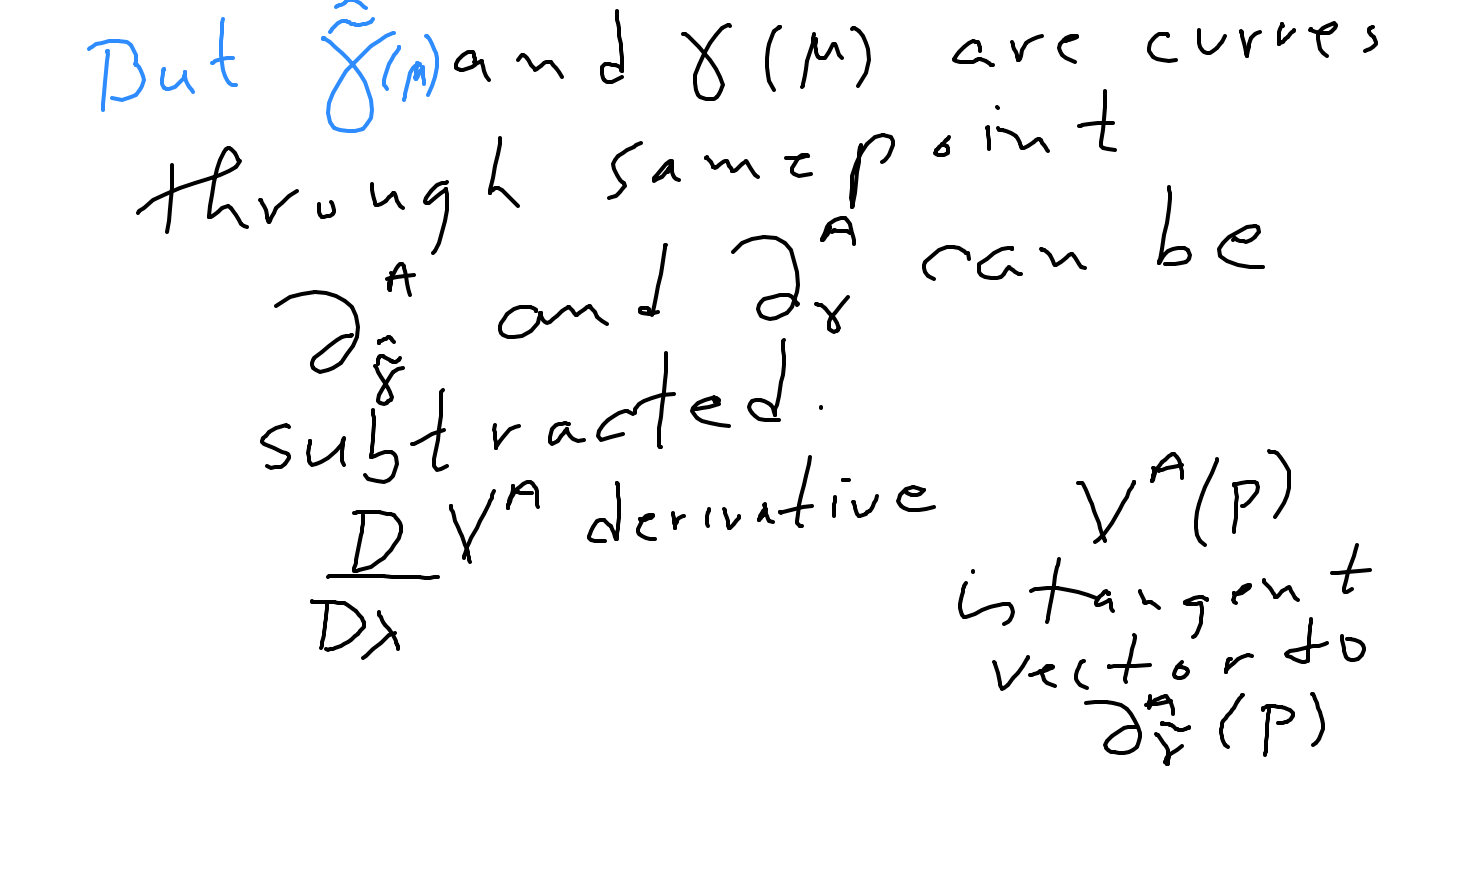 But γ̃̂(μ) and γ(μ) are curves
through same point
∂^A_γ̃̂ and ∂^A_γ can be
subtracted.
D/Dλ V^A derivative
V^A(p)
is tangent
vector to
∂^A_γ̃(p)